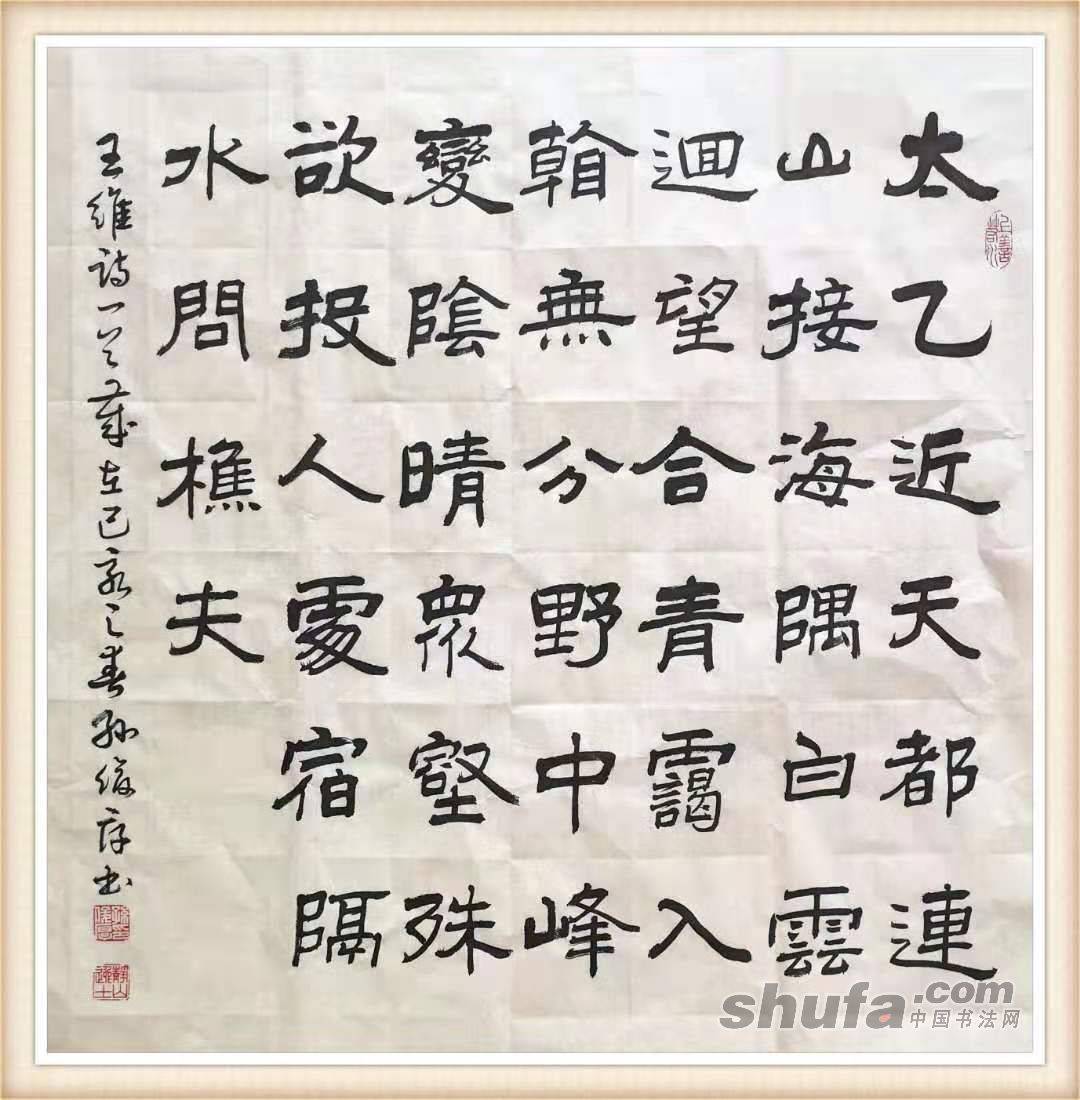 太乙近天都連
山接海隅白雲
迴望合青靄入
看無分野中峰
變陰晴眾壑殊
欲投人處宿隔
水問樵夫
王維詩一首歲在己亥之春孫俊书
上善若水
shufa.com
中国书法网